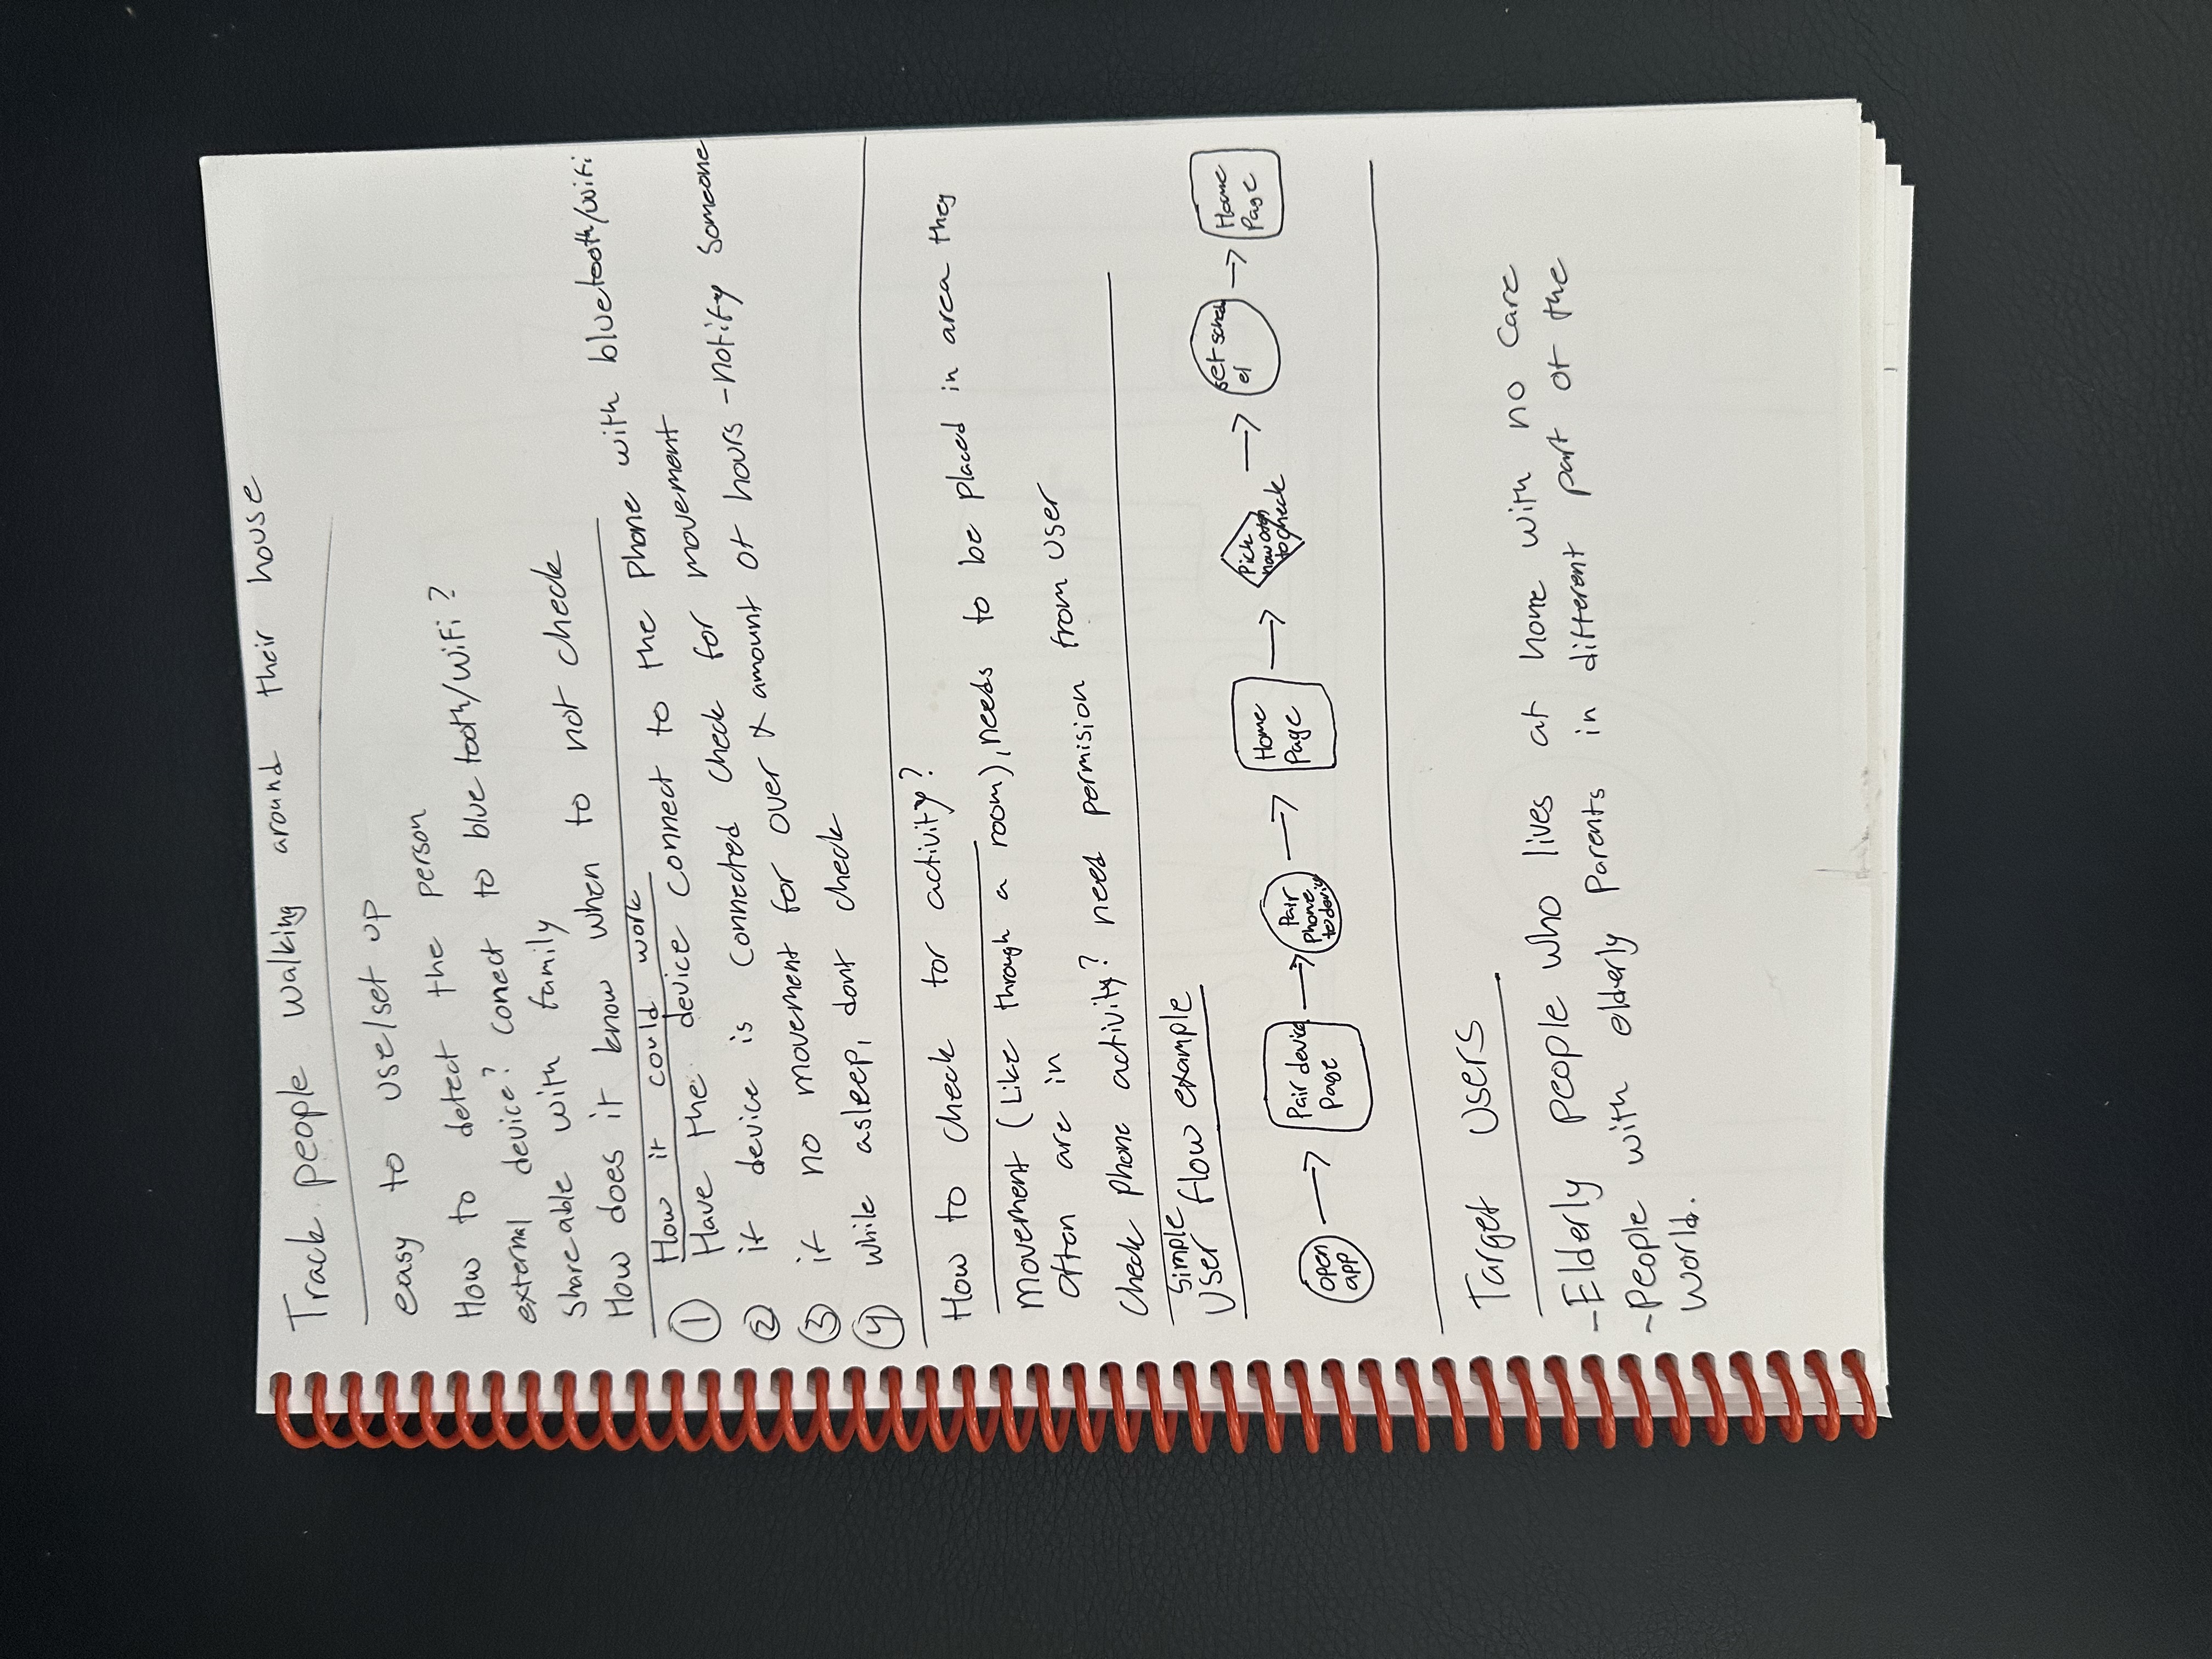 Track people walking around their house
easy to use/set up
How to detect the person
external device? Conect to blue tooth/WiFi?
Shareable with family
How does it know when to not check
How it could work
① Have the device connect to the Phone with bluetooth/wifi
② if device is connected check for movement
③ if no movement for over X amount of hours - notify someone
④ while asleep, dont check
How to check for activity?
movement (Like through a room), needs to be placed in area they
often are in
Check Phone activity? need permision from user
Simple
User flow example
open
app
Pair device
Page
Pair
phone
to device
Home
Page
Pick
how often
to check
set sched
el
Home
Page
Target Users
- Elderly people who lives at home with no care
- People with elderly Parents in different part of the
World.